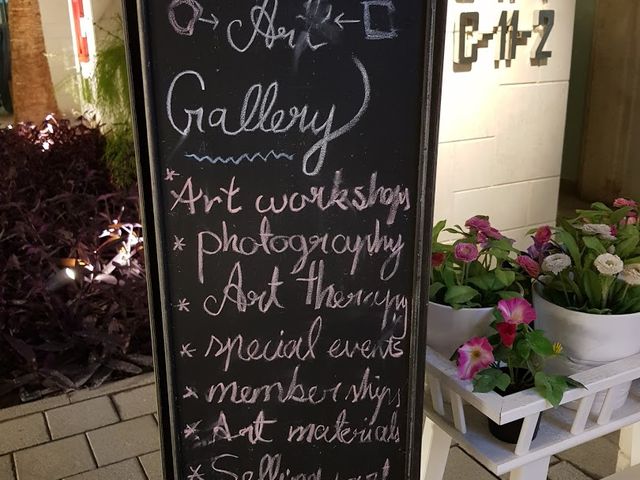 C-11-2
Art
Gallery
* Art workshops
* photography
* Art therapy
* special events
* memberships
* Art materials
* Selling art